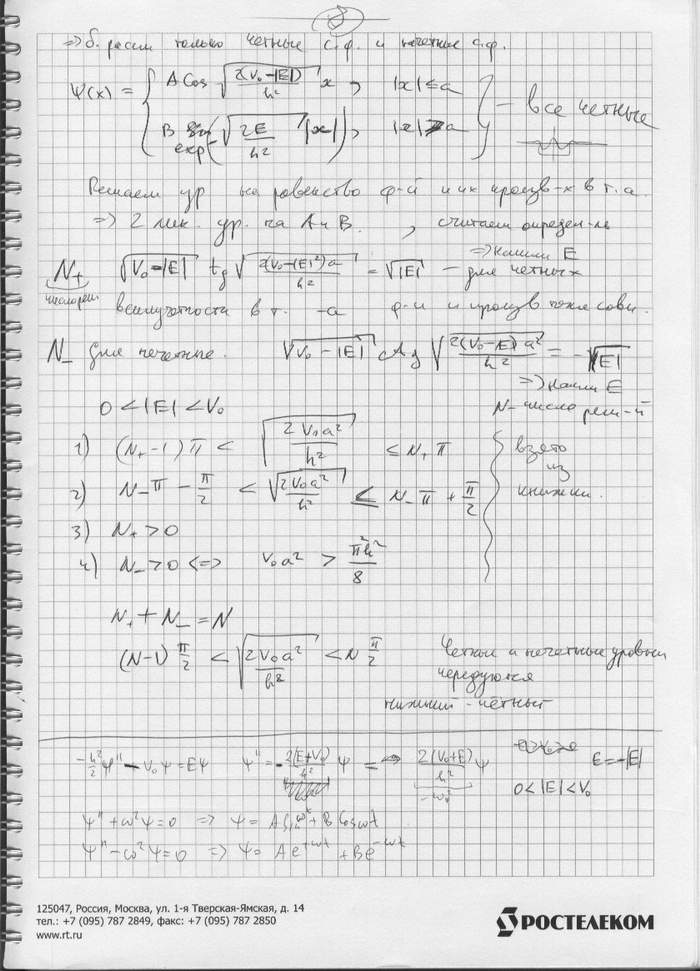 8
=> б. рассм только четные с.ф. и нечетные с.ф.
Ψ(x) = { A Cos √(2(V₀-|E|)/ħ²) x , |x| ≤ a
B exp(-√(2E/ħ²) |x|), |x| > a } - все четные
Решаем ур на равенство ф-й и их произв-х в т. a.
=> 2 лин. ур. на A и B. , считаем определ-ль
=> нашли E
N₊ √(V₀-|E|) tg √(2(V₀-|E|²)a/ħ²) = √|E| - для четных
число реш
в т. -a ф-и и произв тоже совп.
N₋ для нечетные. √(V₀-|E|) ctg √(2(V₀-|E|)a²/ħ²) = -√|E|
=> нашли E
0 < |E| < V₀ N- число реш-й
1) (N₊-1)π < √(2V₀a²/ħ²) ≤ N₊π взято
2) N₋π - π/2 < √(2V₀a²/ħ²) ≤ N₋π + π/2 из книжки.
3) N₊ > 0
4) N₋ > 0 <=> V₀a² > π²ħ²/8
N₊ + N₋ = N
(N-1) π/2 < √(2V₀a²/ħ²) < N π/2 Четные и нечетные уровни
чередуются
нижний - чётный
-ħ²/2 Ψ'' - V₀Ψ = EΨ Ψ'' = -2(E+V₀)/ħ² Ψ = 2(V₀+E)/ħ² Ψ E = -|E|
-ω² 0 < |E| < V₀
Ψ'' + ω²Ψ = 0 => Ψ = A Sin ωt + B Cos ωt
Ψ'' - ω²Ψ = 0 => Ψ = A e^(+ωt) + B e^(-ωt)
125047, Россия, Москва, ул. 1-я Тверская-Ямская, д. 14
тел.: +7 (095) 787 2849, факс: +7 (095) 787 2850
www.rt.ru
РОСТЕЛЕКОМ